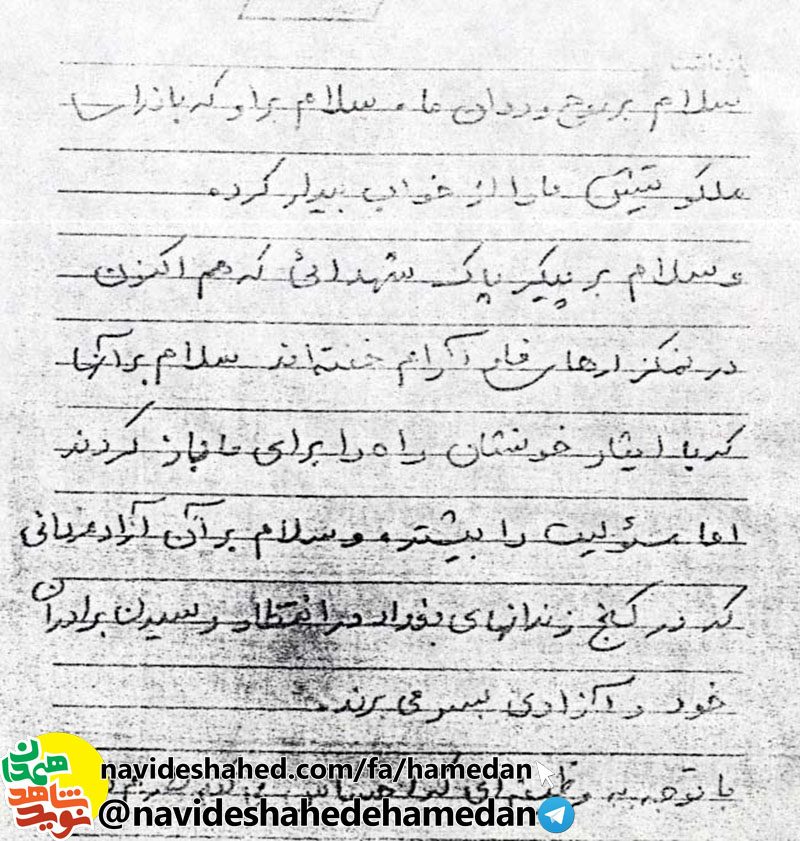 سلام بر روح و روان ما و سلام بر او که با ندای
ملکوتیش ما را از خواب بیدار کرده
و سلام بر پیکر پاک شهدائی که هم اکنون
در نمکزارهای فاو آرام خفته‌اند سلام بر آنها
که با ایثار خونشان راه را برای ما باز کردند
اما مسئولیت را بیشتر و سلام بر آن آزادمردانی
که در کنج زندانهای بغداد در انتظار رسیدن برادران
خود و آزادی بسر می برند.
با توجه به
navideshahed.com/fa/hamedan
@navideshahedehamedan
نوید شاهد همدان